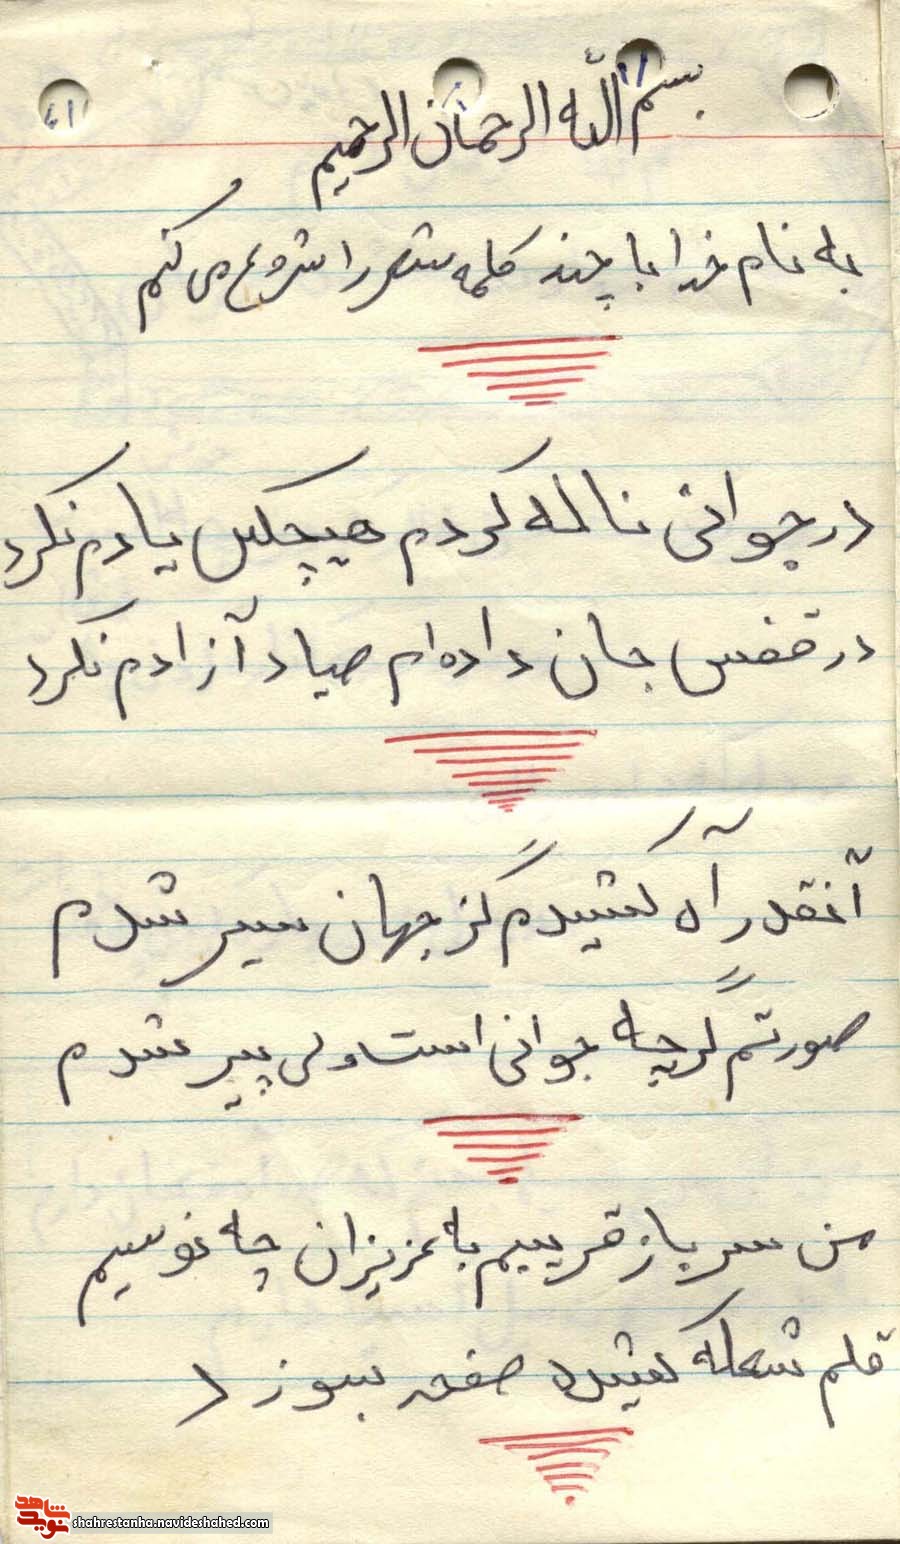 بسم الله الرحمان الرحیم
به نام خدا با چند کلمه شعر را شروع می کنم
در جوانی ناله کردم هیچکس یادم نکرد
در قفس جان داده ام صیاد آزادم نکرد
آنقدر آه کشیدم کز جهان سیر شدم
صورتم گرچه جوانی است ولی پیر شدم
من سرباز قریبم به عزیزان چه نوسیم
قلم شعله کشیده صفحه بسوزد
شاهد
نوید
shahrestanha.navideshahed.com